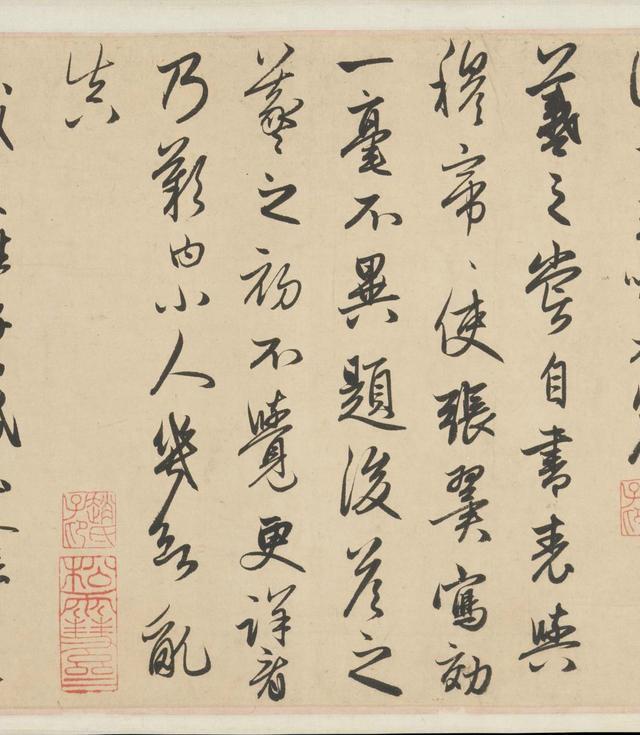 羲之嘗自書表與
穆帝〻使張翼寫効
一毫不異題後荅之
羲之初不覺更詳看
乃歎曰小人幾欲亂
真
趙氏子昂
松雪齋